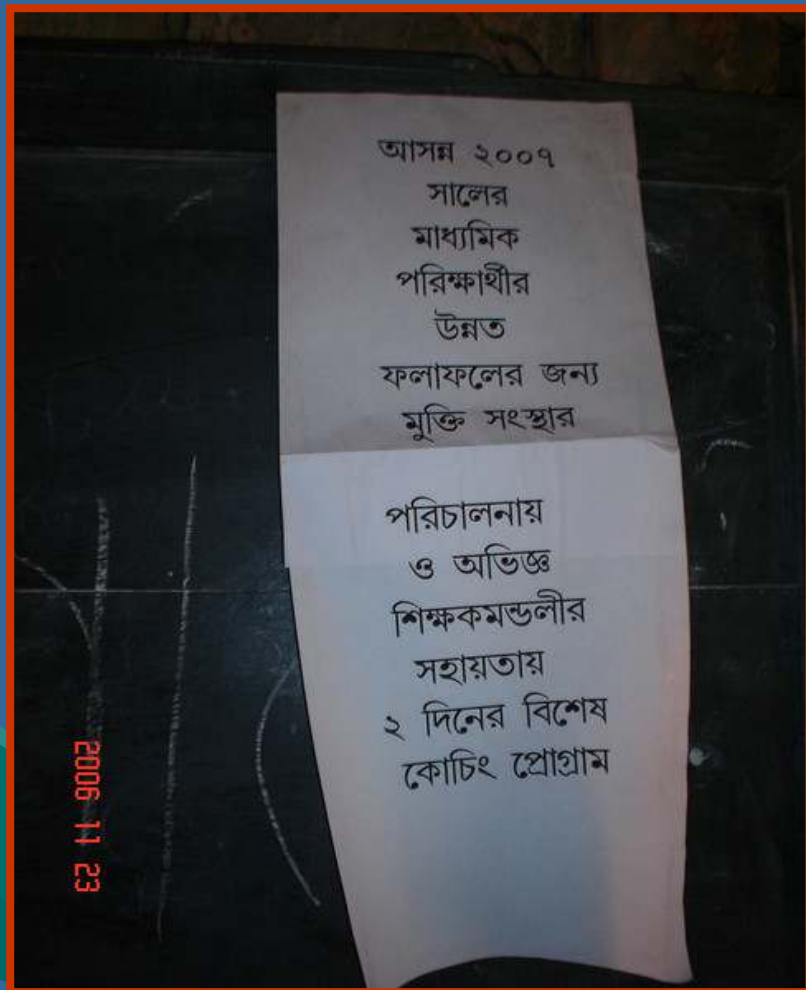 আসন্ন ২০০৭
সালের
মাধ্যমিক
পরিক্ষার্থীর
উন্নত
ফলাফলের জন্য
মুক্তি সংস্থার
পরিচালনায়
ও অভিজ্ঞ
শিক্ষকমন্ডলীর
সহায়তায়
২ দিনের বিশেষ
কোচিং প্রোগ্রাম
2006 11 23